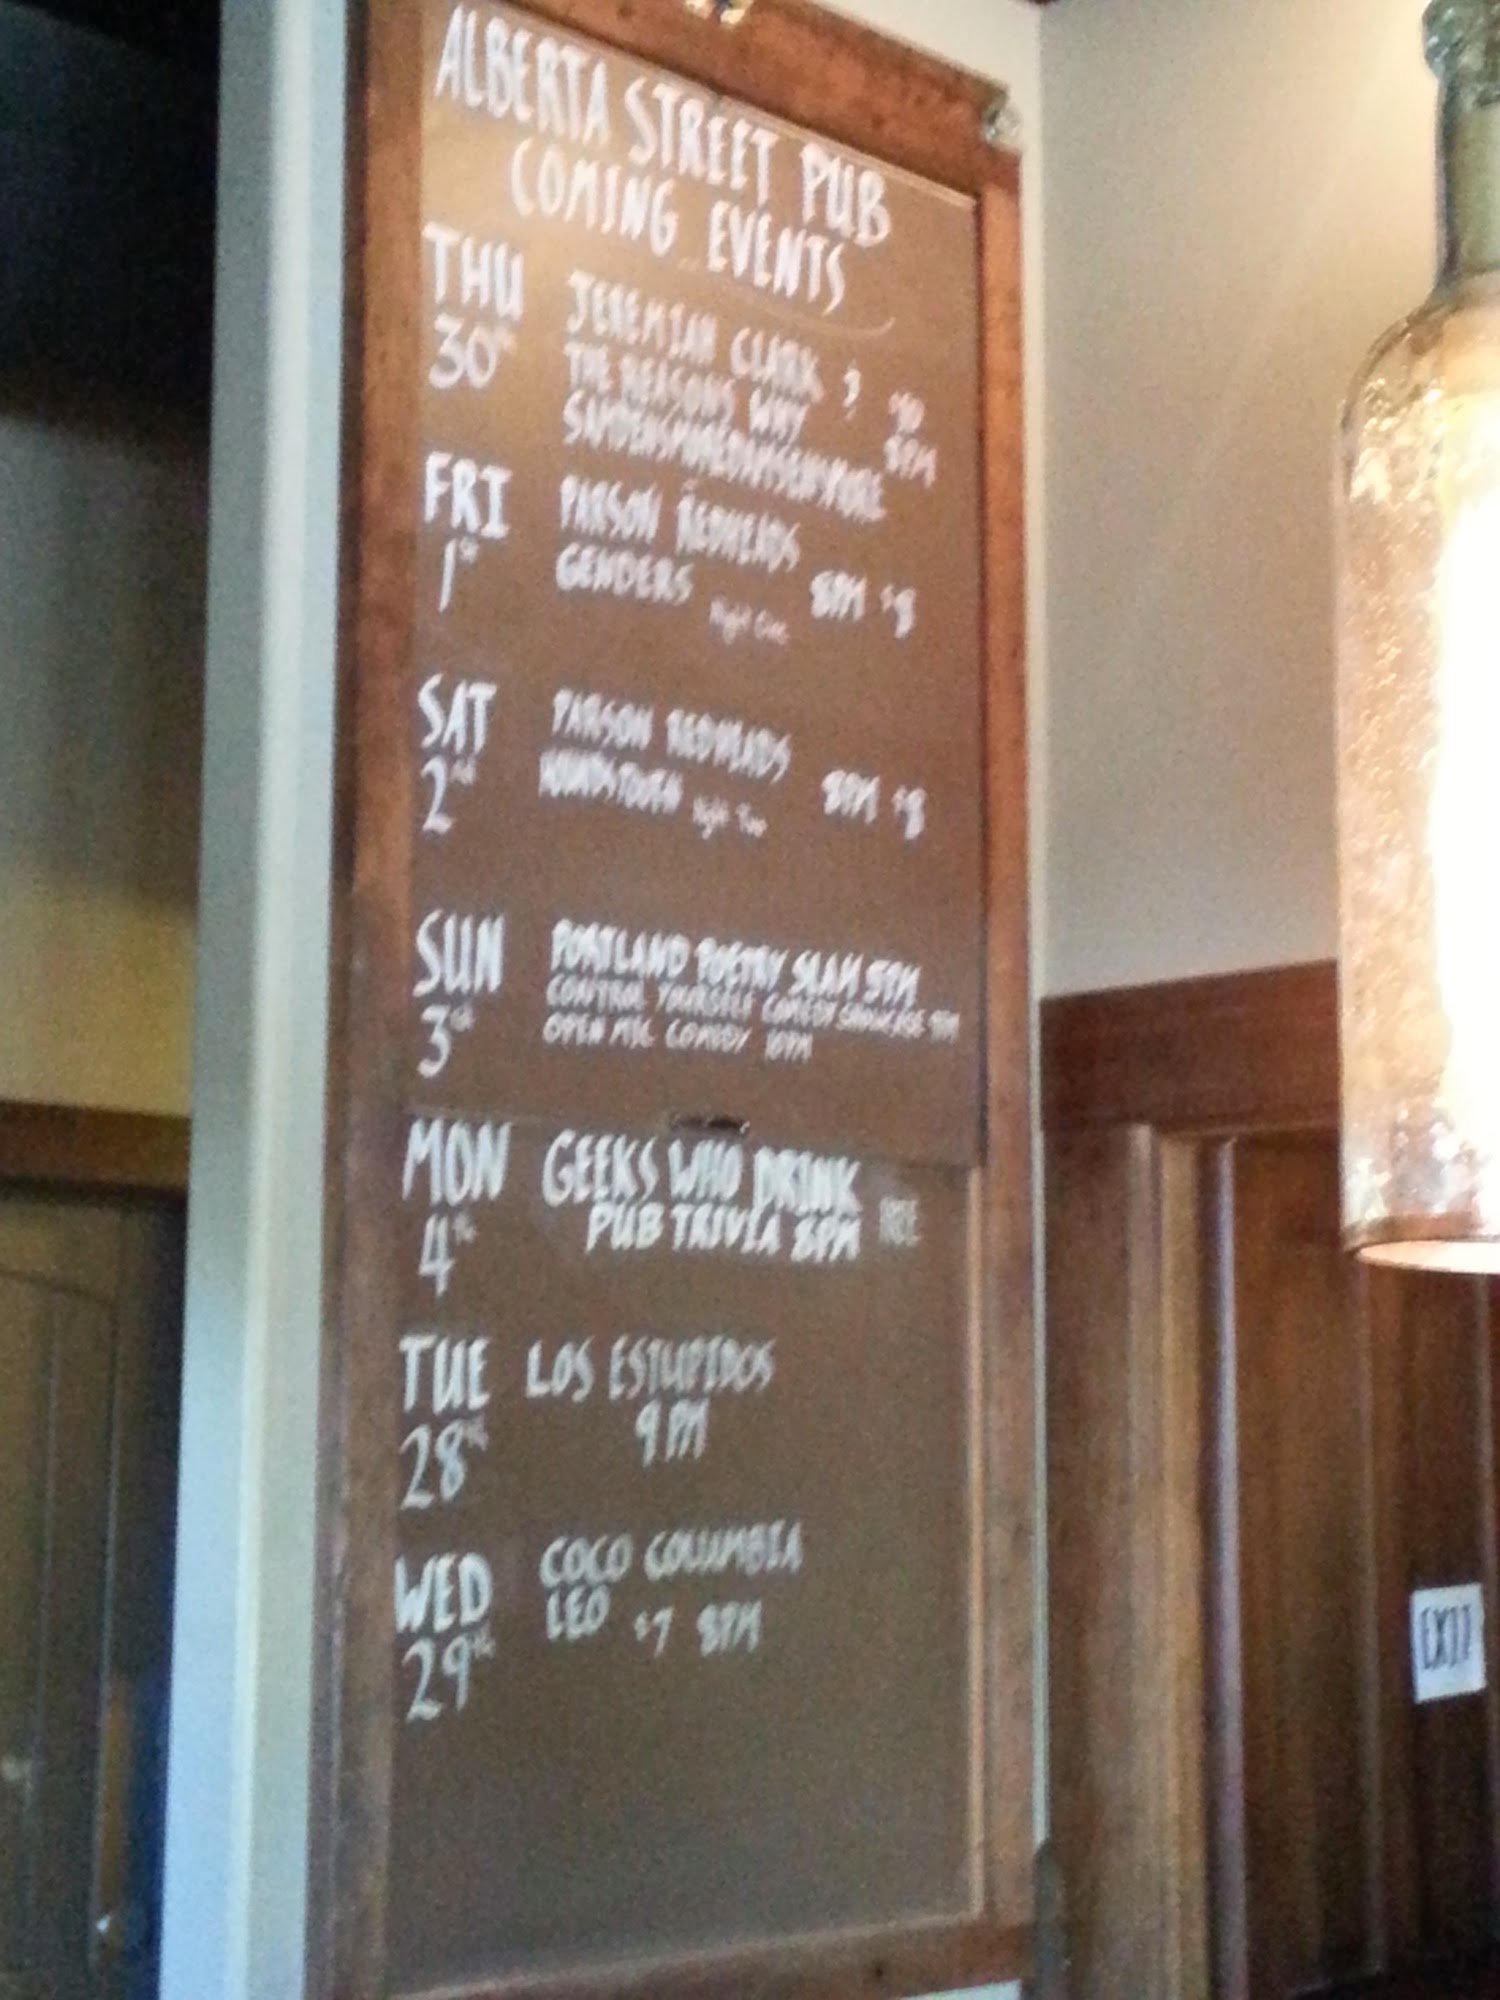 ALBERTA STREET PUB
COMING EVENTS
THU 30th JEREMIAH CLARK $10
THE REASONS WHY 8PM
FRI 1st PARSON REDHEADS
GENDERS Night One 8PM $8
SAT 2nd PARSON REDHEADS
HOUNDSTOOTH Night Two 8PM $8
SUN 3rd PORTLAND POETRY SLAM 5PM
CONTROL YOURSELF COMEDY SHOWCASE 9PM
OPEN MIC COMEDY 10PM
MON 4th GEEKS WHO DRINK
PUB TRIVIA 8PM FREE
TUE 28th LOS ESTUPIDOS
9PM
WED 29th COCO COLUMBIA
LEO $7 8PM
EXIT